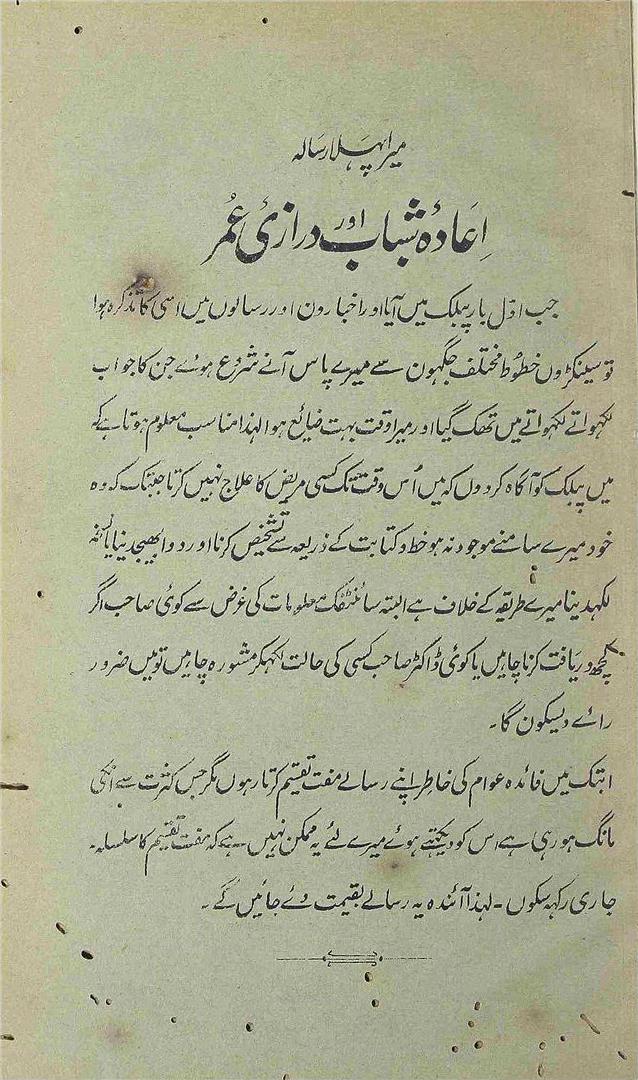 میرا پہلا رسالہ
اِعادۂ شباب اور درازیٔ عُمر
جب اوّل بار پبلک میں آیا اور اخبارون اور رسالوں میں اسی کا تذکرہ ہوا
تو سینکڑوں خطوط مختلف جگہون سے میرے پاس آنے شروع ہوۓ جن کا جواب
لکھواتے لکھواتے میں تھک گیا اور میرا وقت بہت ضائع ہوا لہذا مناسب معلوم ہوتا ہے کہ
میں پبلک کو آگاہ کردوں کہ میں اُس وقت تک کسی مریض کا علاج نہیں کرتا جبتک کہ وہ
خود میرے سامنے موجود نہ ہو خط و کتابت کے ذریعہ سے تشخیص کرنا اور دوا بھیجدینا یا نسخہ
لکہدینا میرے طریقہ کے خلاف ہے البتہ سائنٹفک معلومات کی غرض سے کوئی صاحب اگر
کچھ دریافت کرنا چاہیں یا کوئی ڈاکٹر صاحب کسی کی حالت لکہکر مشورہ چاہیں تو میں ضرور
راۓ دیسکون گا۔
ابتک میں فائدہ عوام کی خاطر اپنے رسالے مفت تقسیم کرتا رہوں مگر جس کثرت سے انکی
مانگ ہو رہی ہے اس کو دیکہتے ہوۓ میرے لئے یہ ممکن نہیں ہے کہ مفت تقسیم کا سلسلہ۔
جاری رکہہ سکوں۔ لہذا آئندہ یہ رسالے بقیمت دۓ جائیں گے۔